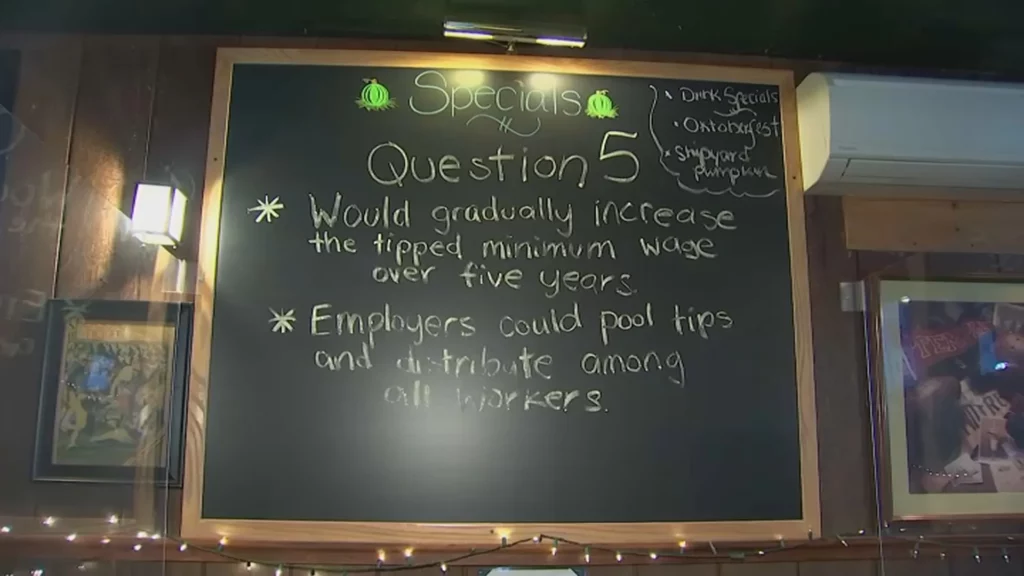 Specials
Drink Specials
Oktoberfest
Shipyard
pumpkin
Question 5
* Would gradually increase
the tipped minimum wage
over five years.
* Employers could pool tips
and distribute among
all workers.